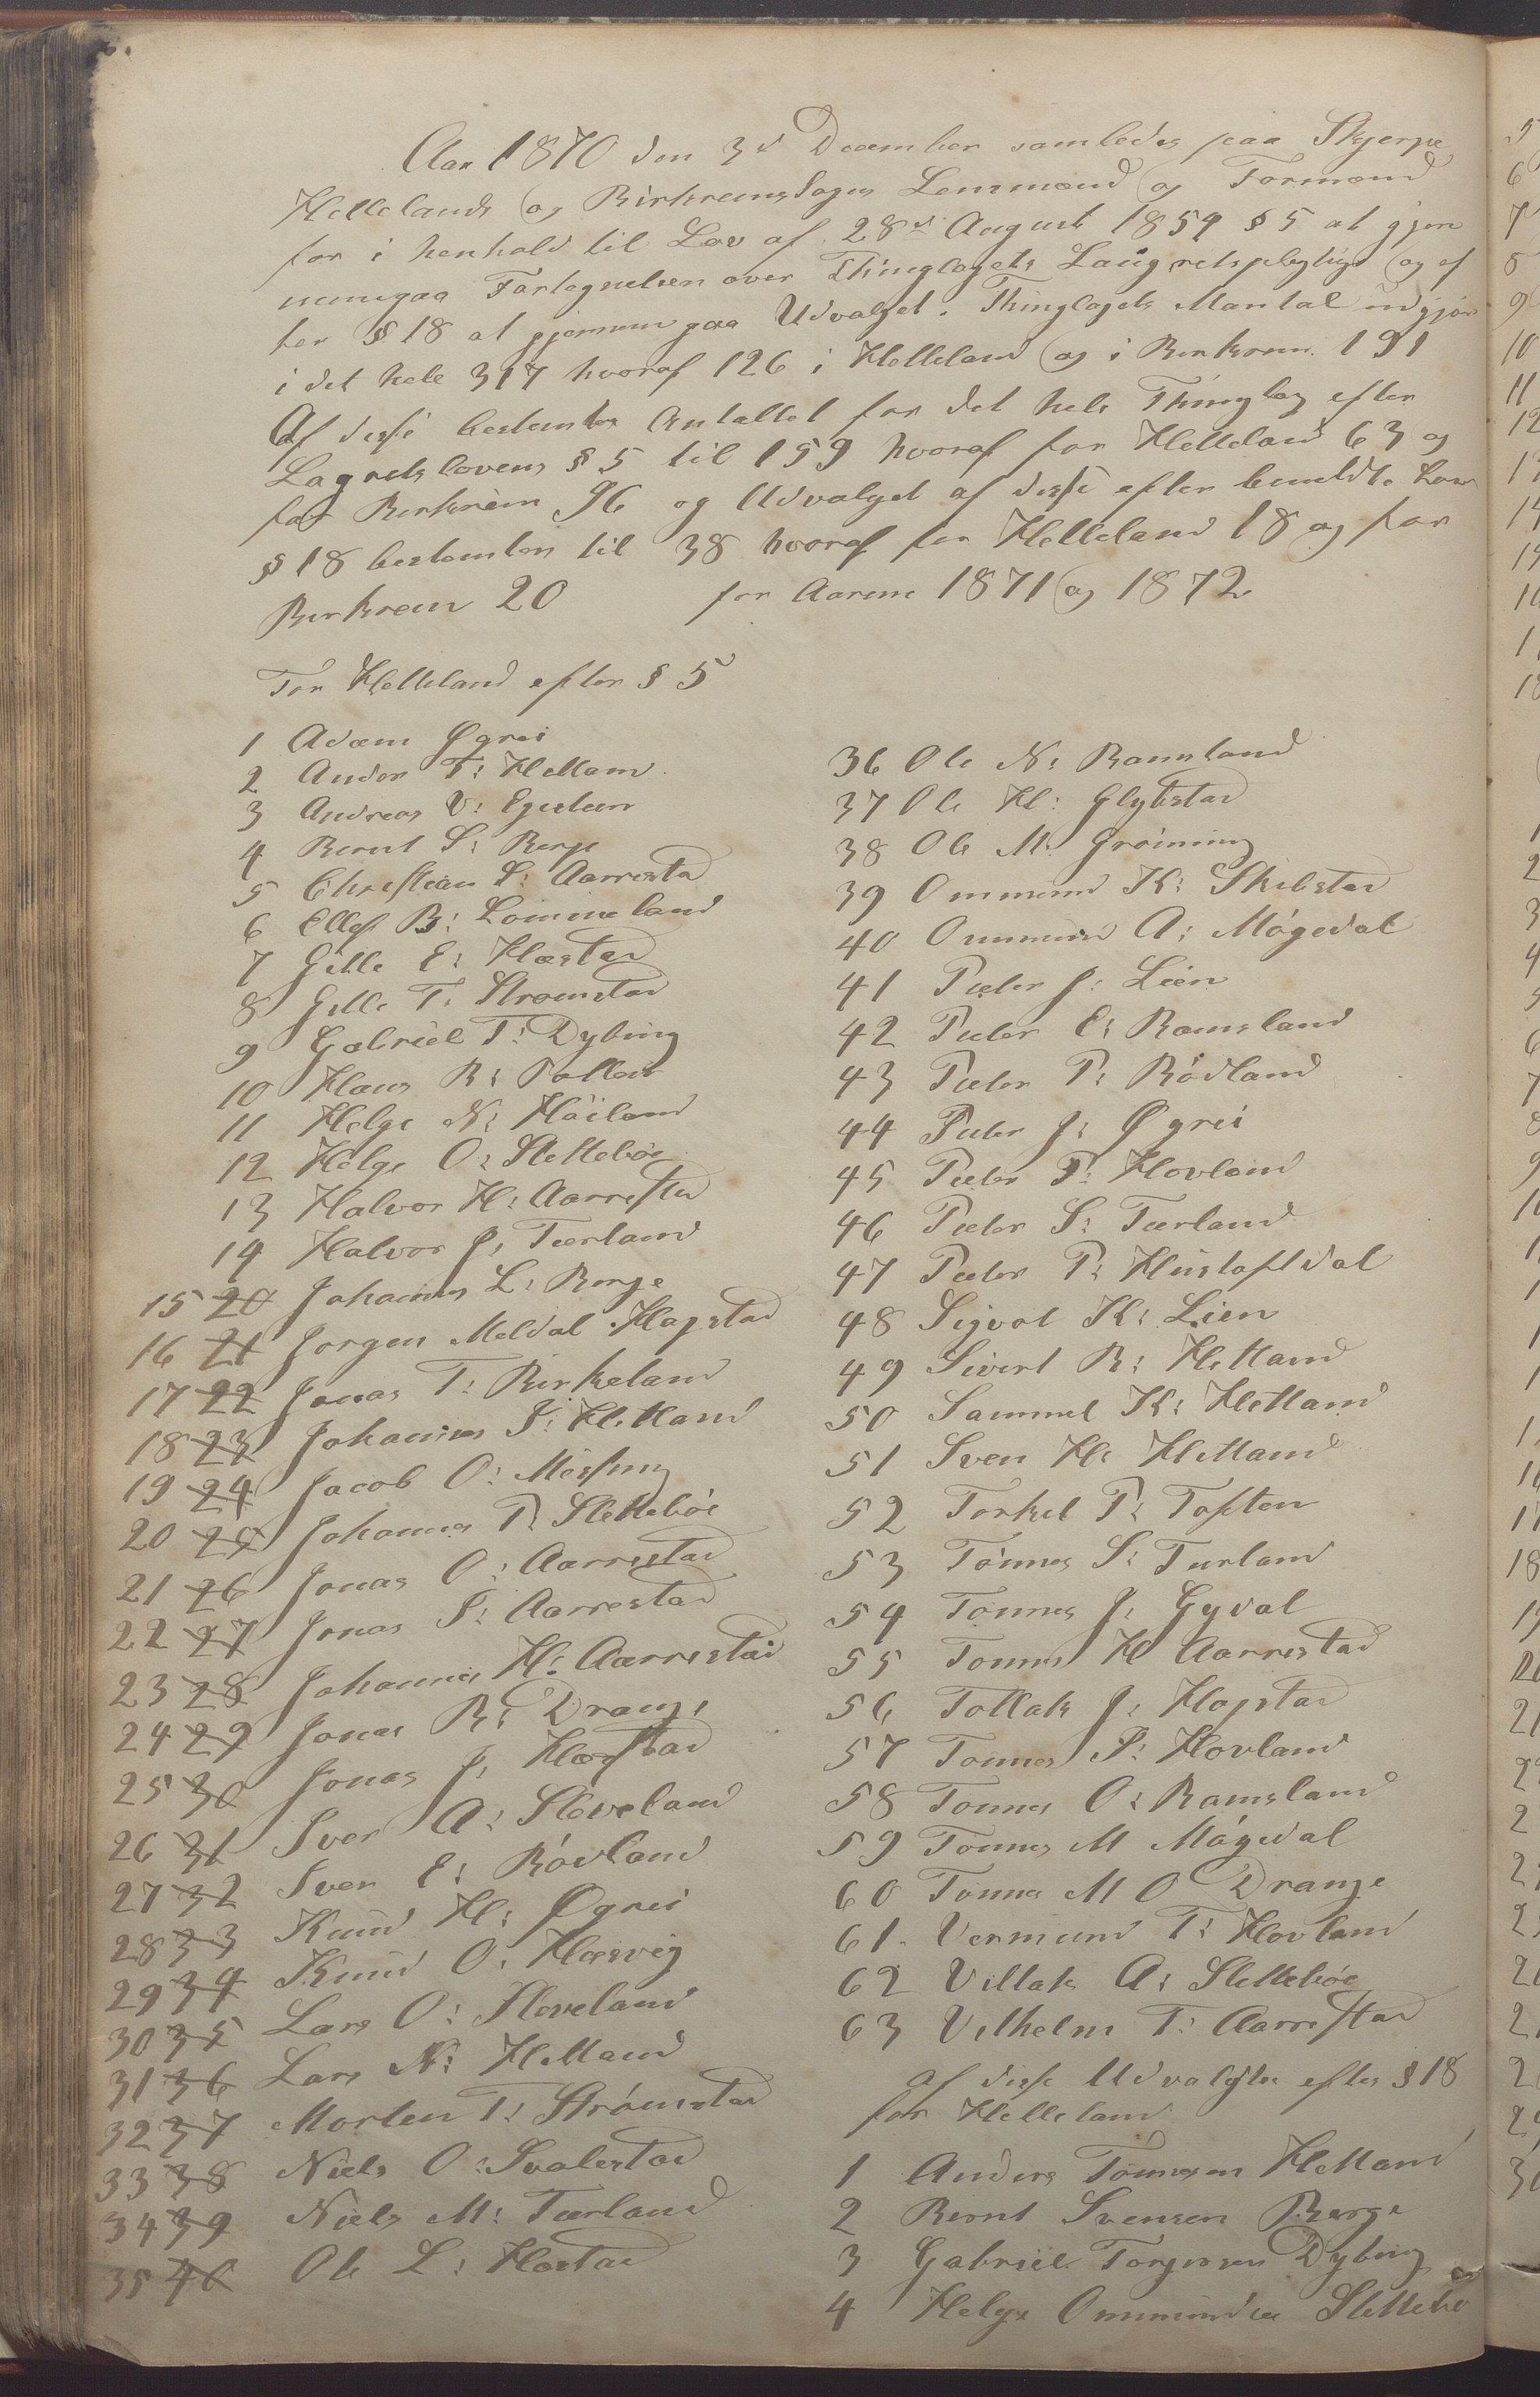 Aar 1870 den 3d December samledes paa Skjerpe
Hellelands og Birkrems Sogns Lensmænd og Formænd
for i henhold til Lov af 28d August 1854 § 5 at gjen
nemgaa Fortegnelsen over Thinglagets Laugretspligtige og ef
ter § 18 at gjennemgaa Udvalget. Thinglagets Mantal udgjør
i det hele 317 hvoraf 126 i Helleland og i Birkrem 191
Af disse bestemtes Antallet for det hele Thinglag efter
Lagretslovens § 5 til 159 hvoraf for Helleland 63 og
for Birkrem 96 og Udvalget af disse efter bemeldte Lov
§ 18 bestemtes til 38 hvoraf for Helleland 18 og for
Birkrem 20 for Aarene 1871 og 1872
For Helleland efter § 5
1 Adam Øgrei
2 Anders T: Hetland
3 Andreas V: Egesteen
4 Bernt S: Berge
5 Christian S: Aarrestad
6 Ellef B: Lomeland
7 Gitle E: Hæstad
8 Gitle T: Strømstad
9 Gabriel T: Dybing
10 Hans R:
11 Helge N: Høiland
12 Helge O: Slettebøe
13 Halvor H: Aarrestad
14 Halvor J: Tærland
15 20 Johannes L: Berge
16 21 Jørgen Meldal Hapstad
17 22 Jonas T: Birkeland
18 23 Johannes J: Hetland
19 24 Jacob O: Mössing
20 25 Johannes P: Slettebøe
21 26 Jonas O: Aarrestad
22 27 Jonas S: Aarrestad
23 28 Johannes H: Aarrestad
24 29 Jonas R: Drange
25 30 Jonas J: Hæstad
26 31 Iver A: Sleveland
27 32 Iver E: Rövland
28 33 Knud H: Øgrei
29 34 Knud O: Hæsvig
30 35 Lars O: Sleveland
31 36 Lars N: Hetland
32 37 Morten T: Strømstad
33 38 Niels O: Svalestad
34 39 Niels M: Tærland
35 40 Ole L: Hæstad
36 Ole N: Ramsland
37 Ole H: Glypstad
38 Ole M: Grøining
39 Ommund K: Skibstad
40 Ommund A: Mögedal
41 Peder J: Lien
42 Peder E: Ramsland
43 Peder P: Rödland
44 Peder J: Øgrei
45 Peder P: Hovland
46 Peder S: Tærland
47 Peder P: Hustoftdal
48 Sigval K: Lien
49 Sivert R: Hetland
50 Samuel K: Hetland
51 Sven H: Hetland
52 Torkel P: Toften
53 Tönnes S: Terland
54 Tönnes J: Gydal
55 Tönnes H Aarrestad
56 Tollak J: Hapstad
57 Tonnes P: Hovland
58 Tonnes O: Ramsland
59 Tonnes M Mögedal
60 Tonnes M O Drange
61 Vermund T: Hovland
62 Villak A: Slettebøe
63 Vilhelm T: Aarrestad
af disse Udvalgte efter § 18
for Helleland
1 Anders Tønnesen Hetland
2 Bernt Svensen Berge
3 Gabriel Torgersen Dybing
4 Helge Ommundsen Slettebø